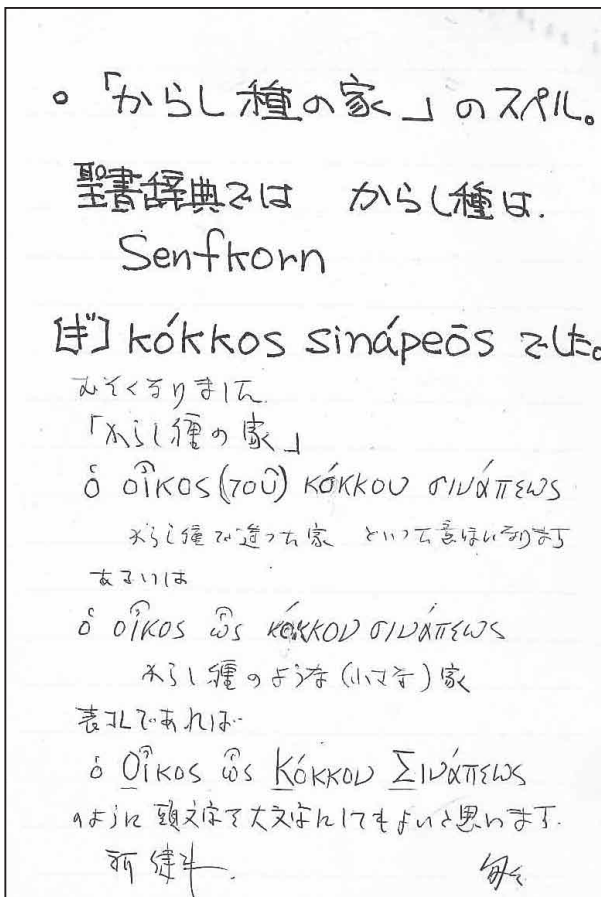 。「からし種の家」のスペル。
聖書辞典では からし種は.
Senfkorn
[ギ] kókkos sinápeōs でした。
おそくなりました
「からし種の家」
ὁ οἶκος (τοῦ) κόκκου σινάπεως
からし種で造った家 といった意味になります
あるいは
ὁ οἶκος ὡς κόκκου σινάπεως
からし種のような(小さな)家
表札であれば
ὁ Οἶκος ὡς Κόκκου Σινάπεως
のように 頭文字を大文字にしてもよいと思います.